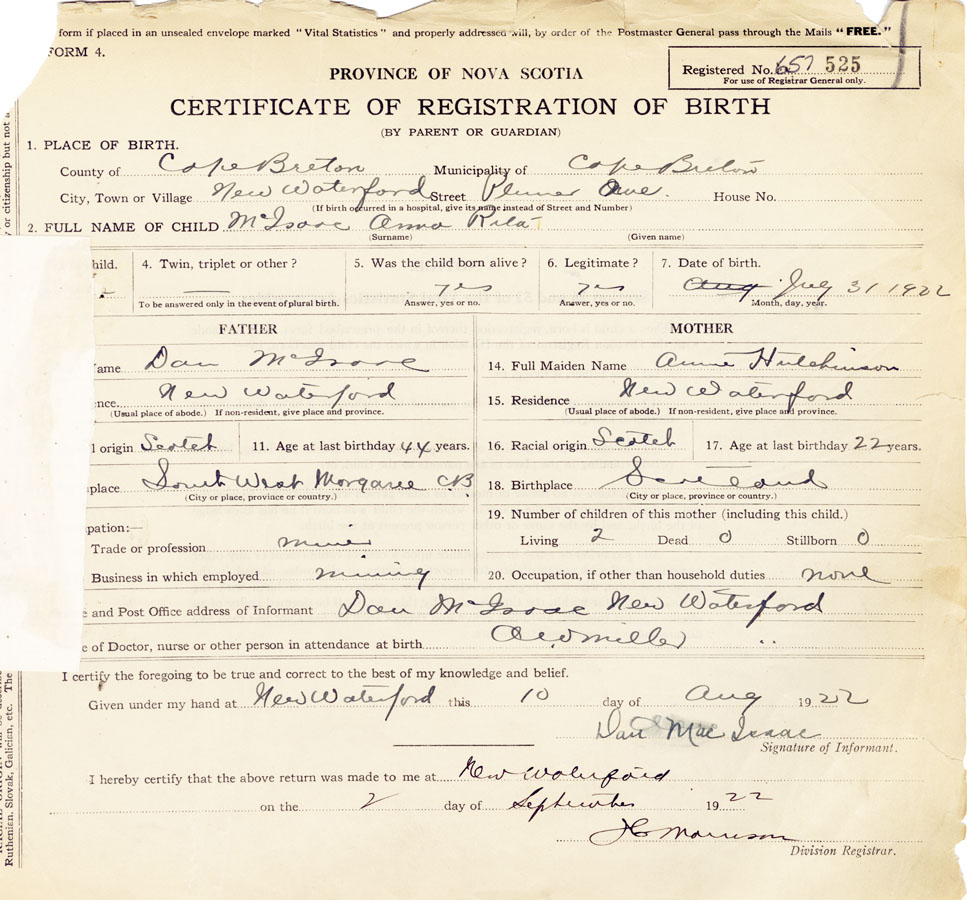 form if placed in an unsealed envelope marked "Vital Statistics" and properly addressed will, by order of the Postmaster General pass through the Mails "FREE."
FORM 4.
Registered No. 657 525
For use of Registrar General only.
PROVINCE OF NOVA SCOTIA
CERTIFICATE OF REGISTRATION OF BIRTH
(BY PARENT OR GUARDIAN)
1. PLACE OF BIRTH.
County of Cape Breton Municipality of Cape Breton
City, Town or Village New Waterford Street Plumer Ave. House No.
(If birth occurred in a hospital, give its name instead of Street and Number)
2. FULL NAME OF CHILD McIsaac Anna Rita
(Surname) (Given name)
hild. 4. Twin, triplet or other? 5. Was the child born alive? 6. Legitimate? 7. Date of birth.
— yes yes Aug July 31 1922
To be answered only in the event of plural birth. Answer, yes or no. Answer, yes or no. Month, day, year.
FATHER MOTHER
ame Dan McIsaac 14. Full Maiden Name Annie Hutchinson
ence. New Waterford 15. Residence New Waterford
(Usual place of abode.) If non-resident, give place and province. (Usual place of abode.) If non-resident, give place and province.
l origin Scotch 11. Age at last birthday 44 years. 16. Racial origin Scotch 17. Age at last birthday 22 years.
place South West Margaree CB 18. Birthplace Scotland
(City or place, province or country.) (City or place, province or country.)
19. Number of children of this mother (including this child.)
pation:—
Trade or profession miner Living 2 Dead 0 Stillborn 0
Business in which employed mining 20. Occupation, if other than household duties none
e and Post Office address of Informant Dan McIsaac New Waterford
e of Doctor, nurse or other person in attendance at birth Miller
I certify the foregoing to be true and correct to the best of my knowledge and belief.
Given under my hand at New Waterford this 10 day of Aug 1922
Dan Mac Isaac
Signature of Informant.
I hereby certify that the above return was made to me at New Waterford
on the 2 day of September 1922
Morrison
Division Registrar.
or citizenship but not a
Ruthenian, Slovak, Galician, etc. The